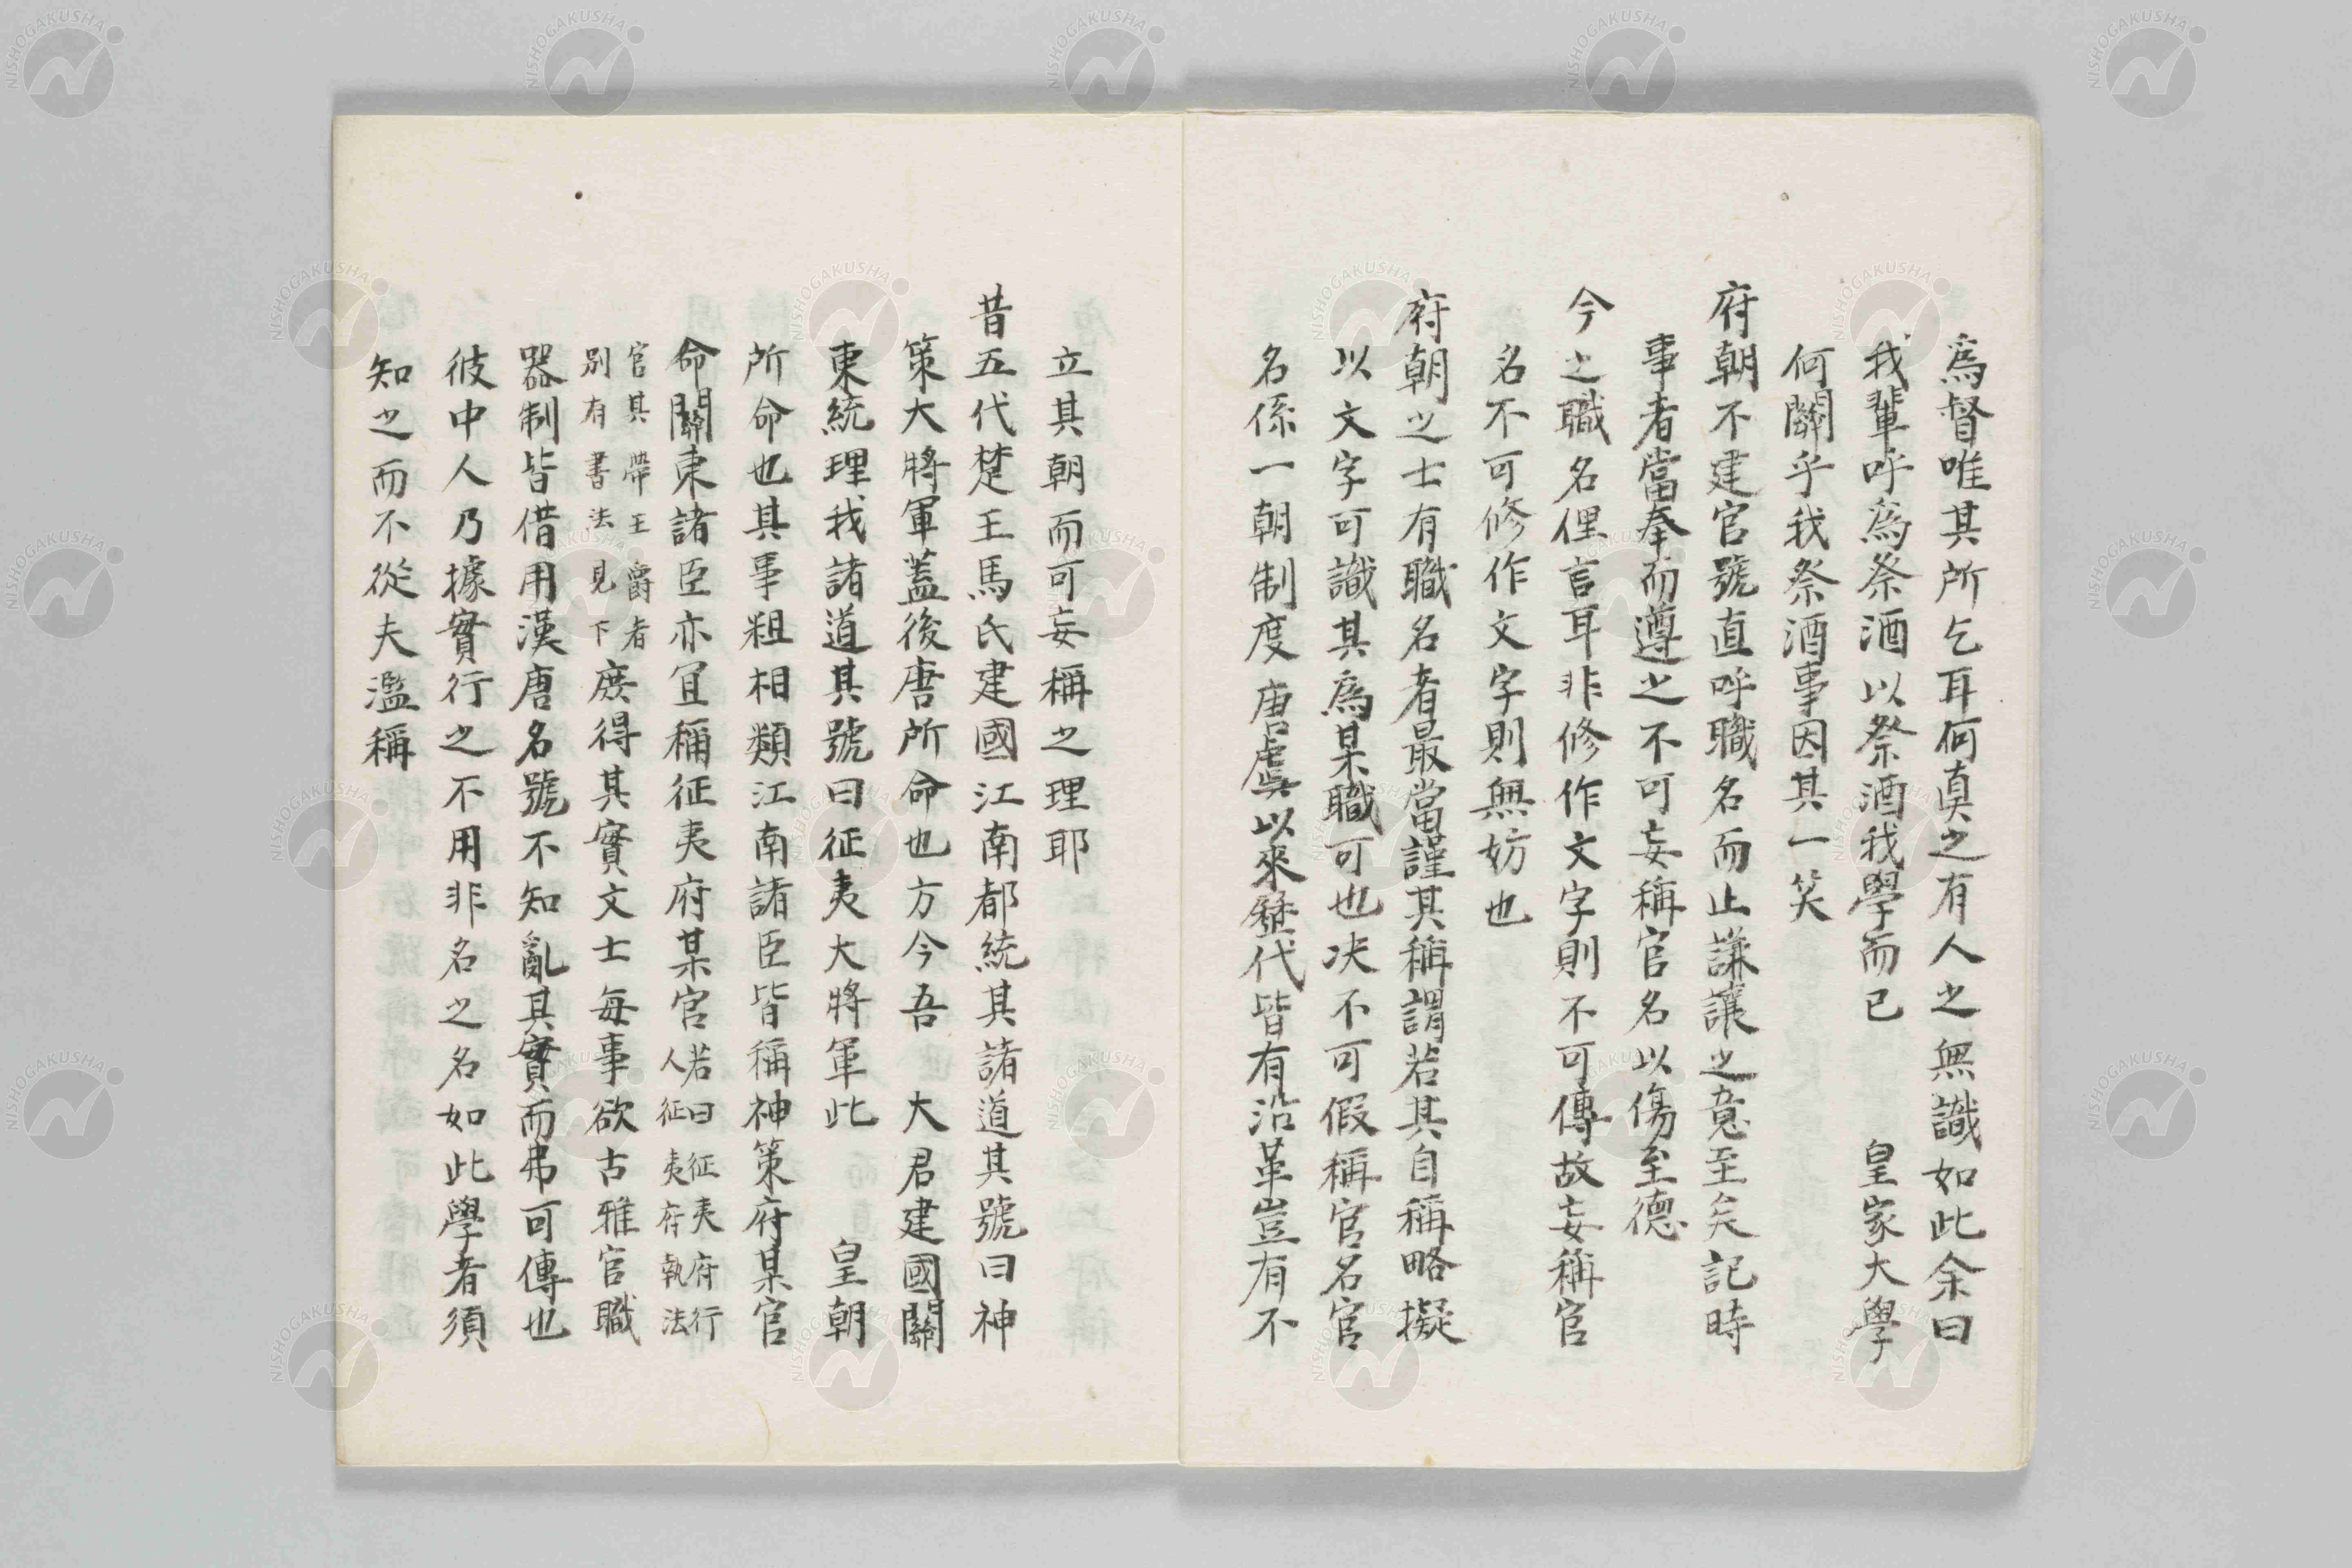 爲督唯其所乞耳何眞之有人之無識如此余曰
我輩呼爲祭酒以祭酒我學而已　皇家大學
何關乎我祭酒事因其一笑
府朝不建官號直呼職名而止謙讓之意至矣記時
事者當奉而遵之不可妄稱官名以傷至德
今之職名俚言耳非修作文字則不可傳故妄稱官
名不可修作文字則無妨也
府朝之士有職名者最當謹其稱謂若其自稱略擬
以文字可識其爲某職可也决不可假稱官名官
名係一朝制度唐虞以來歷代皆有沿革豈有不
立其朝而可妄稱之理耶
昔五代楚王馬氏建國江南都統其諸道其號曰神
策大將軍蓋後唐所命也方今吾　大君建國關
東統理我諸道其號曰征夷大將軍此　皇朝
所命也其事粗相類江南諸臣皆稱神策府某官
命關東諸臣亦宜稱征夷府某官若曰征夷府行
人征夷府執法
官其帶王爵者
別有書法見下庶得其實文士每事欲古雅官職
器制皆借用漢唐名號不知亂其實而弗可傳也
彼中人乃據實行之不用非名之名如此學者須
知之而不從夫濫稱